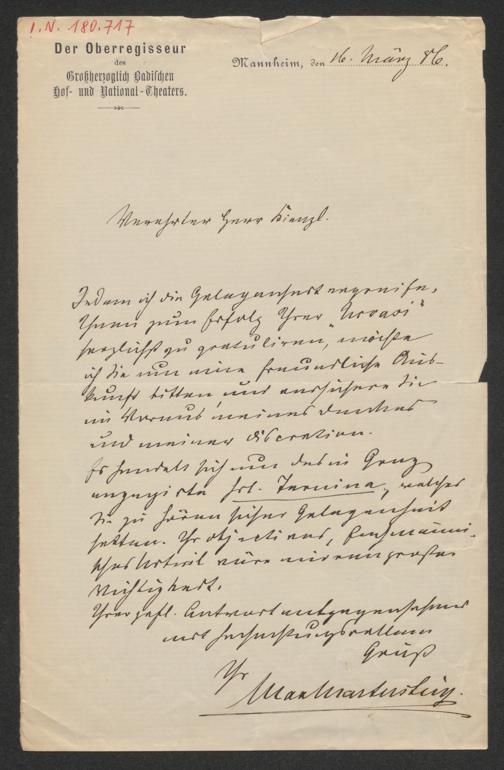 I.N. 180.717
Der Oberregisseur
des
Großherzoglich Badischen
Hof- und National-Theaters.
Mannheim, den 16. März 86.
Verehrter Herr Kienzl.
Indem ich die Gelegenheit ergreife,
Ihnen zum Erfolg Ihrer "Urvasi"
herzlichst zu gratuliren, möchte
ich Sie um eine freundliche Aus-
kunft bitten und versichere Sie
im Voraus meines Dankes
und meiner Discretion.
Es handelt sich um das in Graz
engagirte Frl. Ternina, welches
Sie zu hören sicher Gelegenheit
hatten. Ihr objectives, fachmänni-
sches Urteil wäre mir von großer
Wichtigkeit.
Ihrer gefl. Antwort entgegensehend
mit hochachtungsvollem
Gruß
Ihr
Max Martersteig.